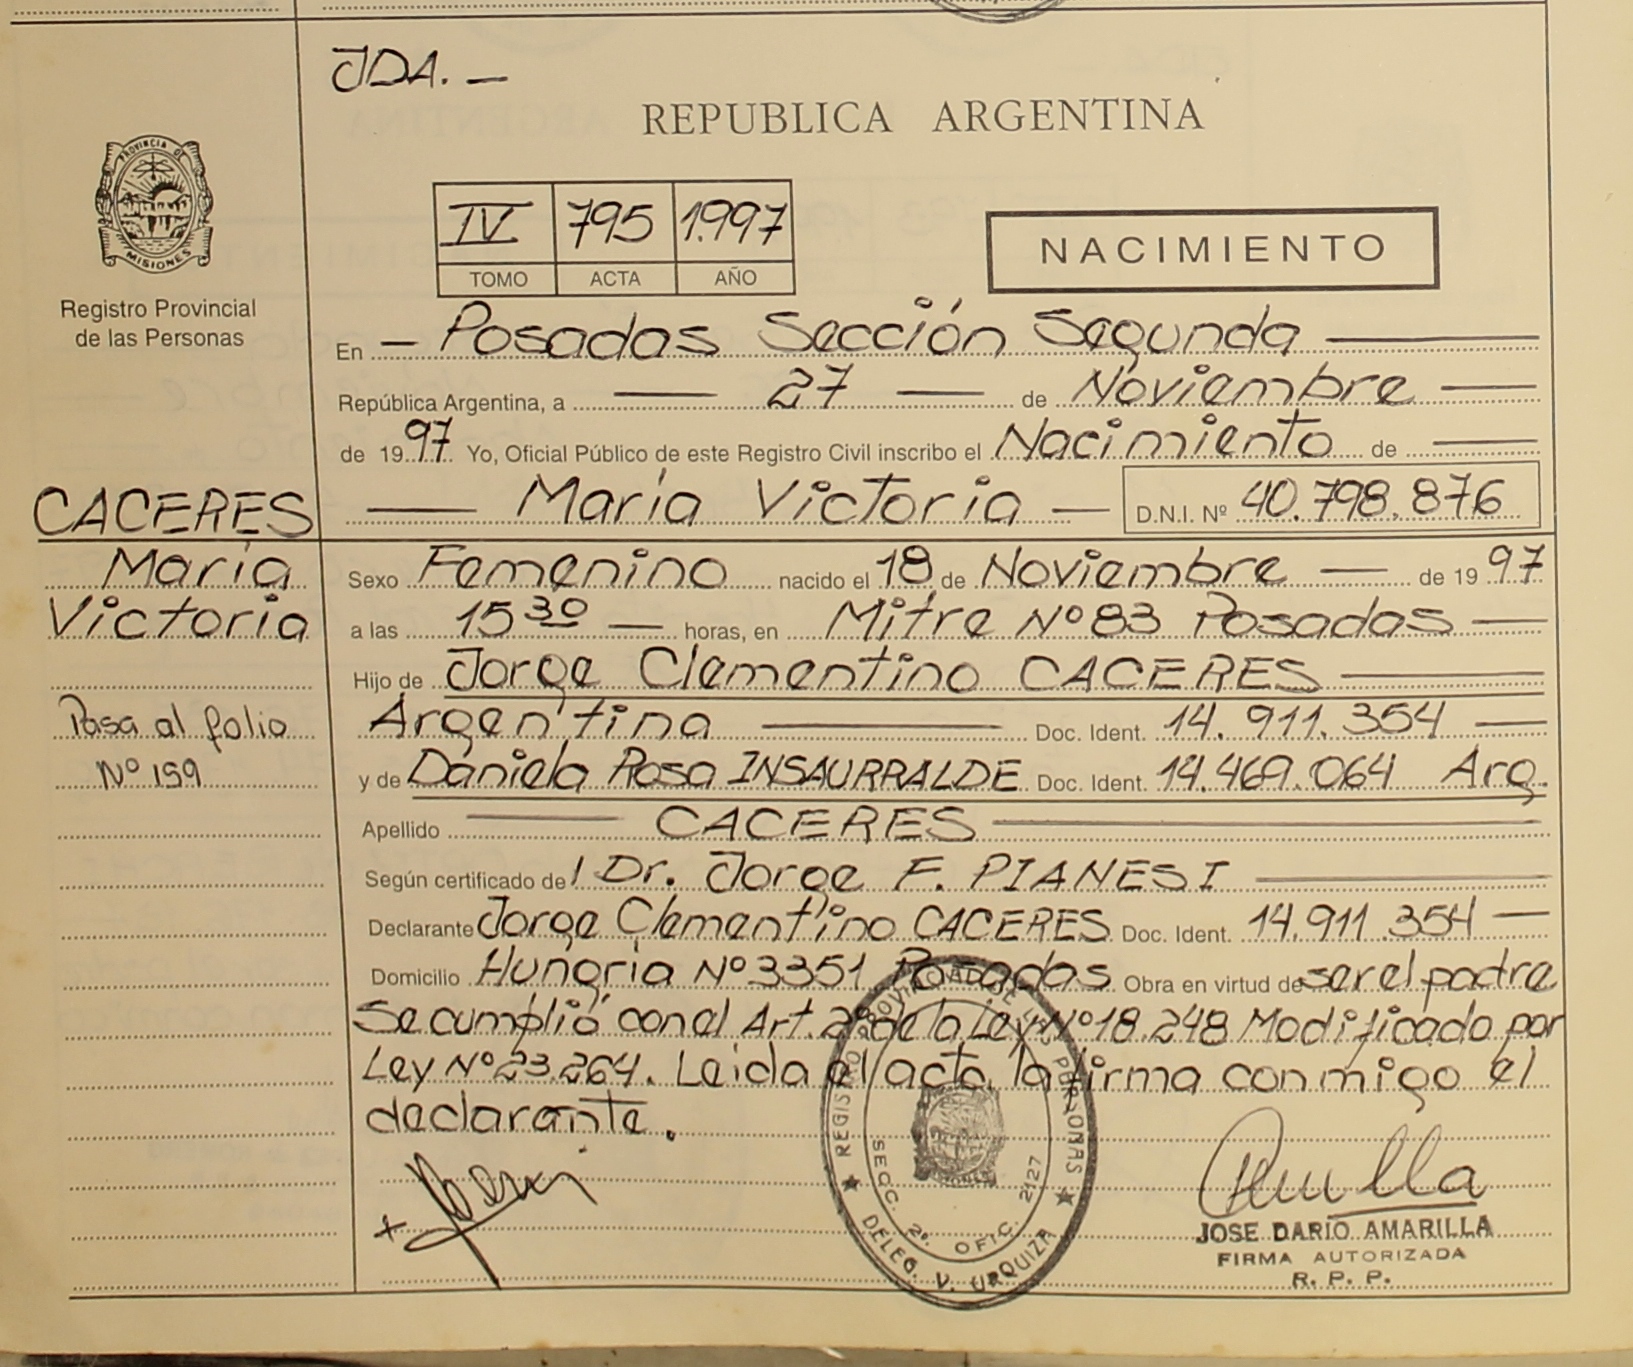 JDA. —
REPUBLICA ARGENTINA
PROVINCIA DE
MISIONES
Registro Provincial
de las Personas
IV 795 1.997
TOMO ACTA AÑO
NACIMIENTO
En — Posadas Sección Segunda —
República Argentina, a — 27 — de Noviembre —
de 1997 Yo, Oficial Público de este Registro Civil inscribo el Nacimiento de —
— María Victoria — D.N.I. Nº 40.798.876
CACERES
María
Victoria
Pasa al folio
Nº 159
Sexo Femenino nacido el 18 de Noviembre — de 1997
a las 15 30 — horas, en Mitre Nº 83 Posadas —
Hijo de Jorge Clementino CACERES —
Argentina — Doc. Ident. 14.911.354 —
y de Daniela Rosa INSAURRALDE Doc. Ident. 14.469.064 Arg.
Apellido — CACERES —
Según certificado del Dr. Jorge F. PIANESI —
Declarante Jorge Clementino CACERES Doc. Ident. 14.911.354 —
Domicilio Hungria Nº 3351 Posadas Obra en virtud de ser el padre
Se cumplió con el Art. 2º de la Ley Nº 18.248 Modificado por
Ley Nº 23.264. Leida el acta, la firma conmigo el
declarante.
REGISTRO PROVINCIAL DE LAS PERSONAS
SECC. 2º. OFIC. 2127
DELEG. V. URQUIZA
JOSE DARIO AMARILLA
FIRMA AUTORIZADA
R. P. P.